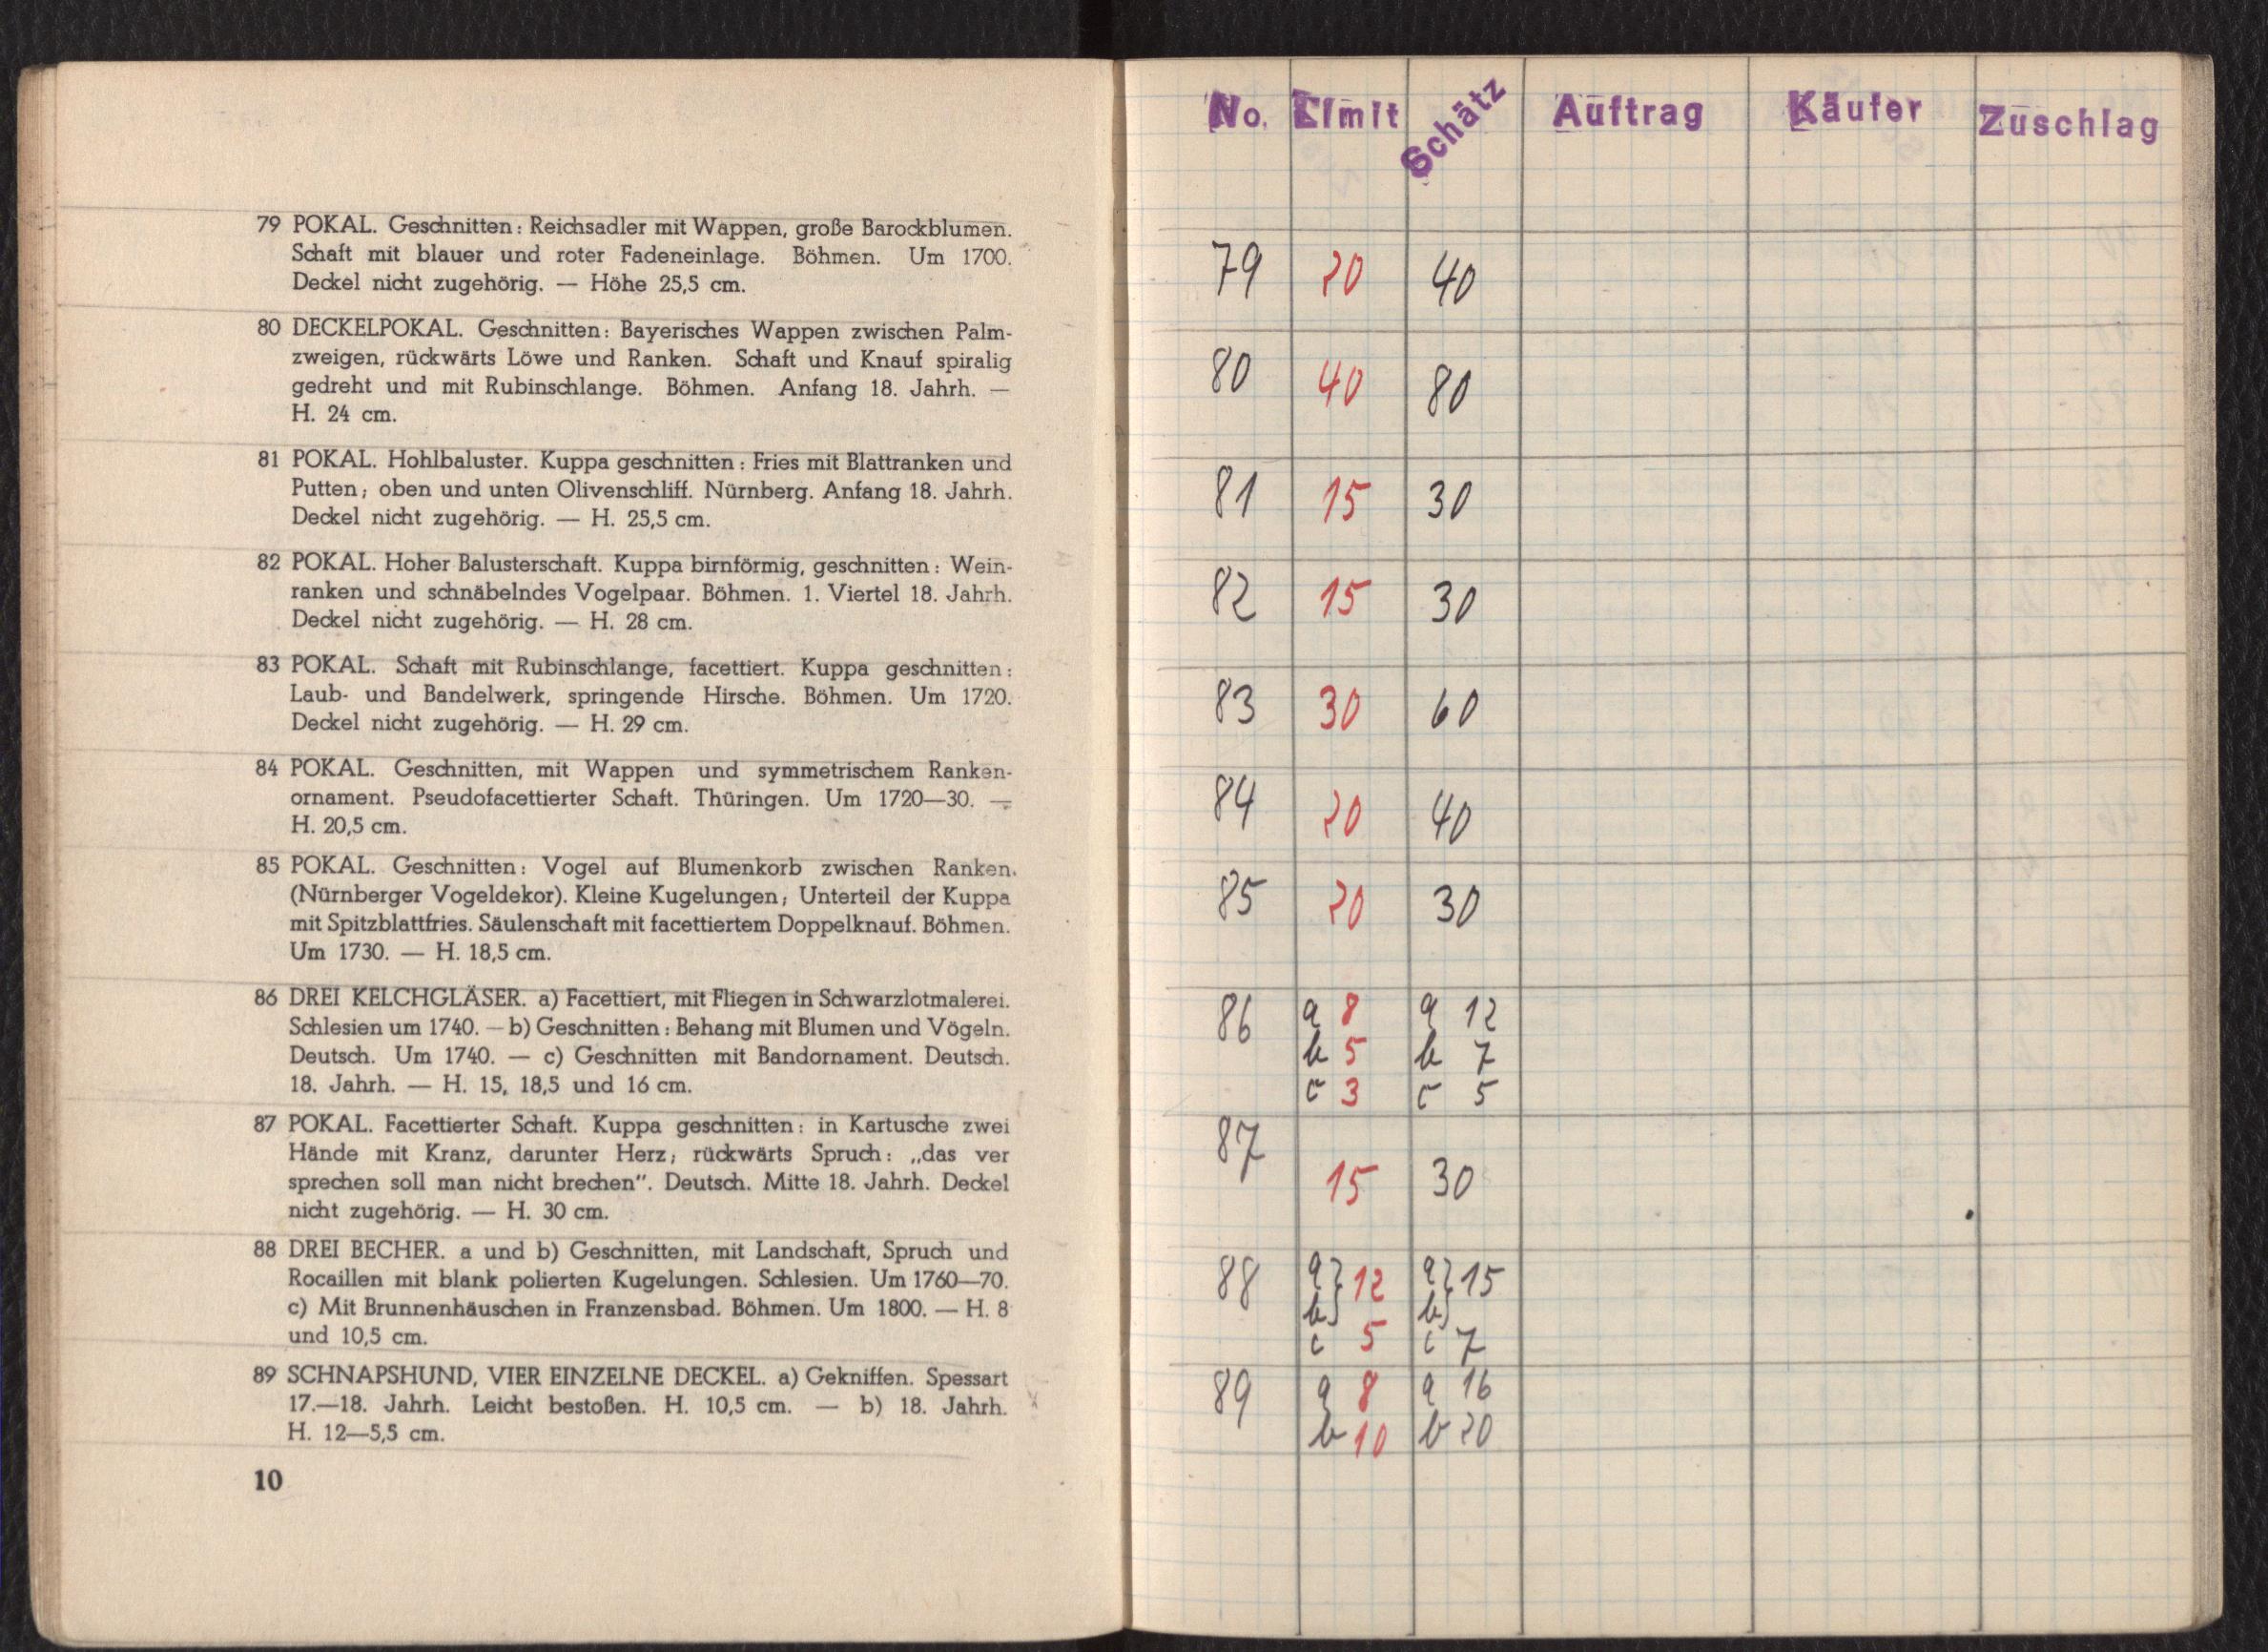 79 POKAL. Geschnitten: Reichsadler mit Wappen, große Barockblumen.
Schaft mit blauer und roter Fadeneinlage. Böhmen. Um 1700.
Deckel nicht zugehörig. — Höhe 25,5 cm.
80 DECKELPOKAL. Geschnitten: Bayerisches Wappen zwischen Palm-
zweigen, rückwärts Löwe und Ranken. Schaft und Knauf spiralig
gedreht und mit Rubinschlange. Böhmen. Anfang 18. Jahrh. —
H. 24 cm.
81 POKAL. Hohlbaluster. Kuppa geschnitten: Fries mit Blattranken und
Putten; oben und unten Olivenschliff. Nürnberg. Anfang 18. Jahrh.
Deckel nicht zugehörig. — H. 25,5 cm.
82 POKAL. Hoher Balusterschaft. Kuppa birnförmig, geschnitten: Wein-
ranken und schnäbelndes Vogelpaar. Böhmen. 1. Viertel 18. Jahrh.
Deckel nicht zugehörig. — H. 28 cm.
83 POKAL. Schaft mit Rubinschlange, facettiert. Kuppa geschnitten:
Laub- und Bandelwerk, springende Hirsche. Böhmen. Um 1720.
Deckel nicht zugehörig. — H. 29 cm.
84 POKAL. Geschnitten, mit Wappen und symmetrischem Ranken-
ornament. Pseudofacettierter Schaft. Thüringen. Um 1720—30. —
H. 20,5 cm.
85 POKAL. Geschnitten: Vogel auf Blumenkorb zwischen Ranken.
(Nürnberger Vogeldekor). Kleine Kugelungen; Unterteil der Kuppa
mit Spitzblattfries. Säulenschaft mit facettiertem Doppelknauf. Böhmen.
Um 1730. — H. 18,5 cm.
86 DREI KELCHGLÄSER. a) Facettiert, mit Fliegen in Schwarzlotmalerei.
Schlesien um 1740. — b) Geschnitten: Behang mit Blumen und Vögeln.
Deutsch. Um 1740. — c) Geschnitten mit Bandornament. Deutsch.
18. Jahrh. — H. 15, 18,5 und 16 cm.
87 POKAL. Facettierter Schaft. Kuppa geschnitten: in Kartusche zwei
Hände mit Kranz, darunter Herz; rückwärts Spruch: „das ver
sprechen soll man nicht brechen“. Deutsch. Mitte 18. Jahrh. Deckel
nicht zugehörig. — H. 30 cm.
88 DREI BECHER. a und b) Geschnitten, mit Landschaft, Spruch und
Rocaillen mit blank polierten Kugelungen. Schlesien. Um 1760—70.
c) Mit Brunnenhäuschen in Franzensbad. Böhmen. Um 1800. — H. 8
und 10,5 cm.
89 SCHNAPSHUND, VIER EINZELNE DECKEL. a) Gekniffen. Spessart
17.—18. Jahrh. Leicht bestoßen. H. 10,5 cm. — b) 18. Jahrh.
H. 12—5,5 cm.
10
No. Limit Schätz Auftrag Käufer Zuschlag
79 20 40
80 40 80
81 15 30
82 15 30
83 30 60
84 20 40
85 20 30
86 a 8 a 12
b 5 b 7
c 3 c 5
87 15 30
88 a} 12 a} 15
b} b}
c 5 c 7
89 a 8 a 16
b 10 b 20